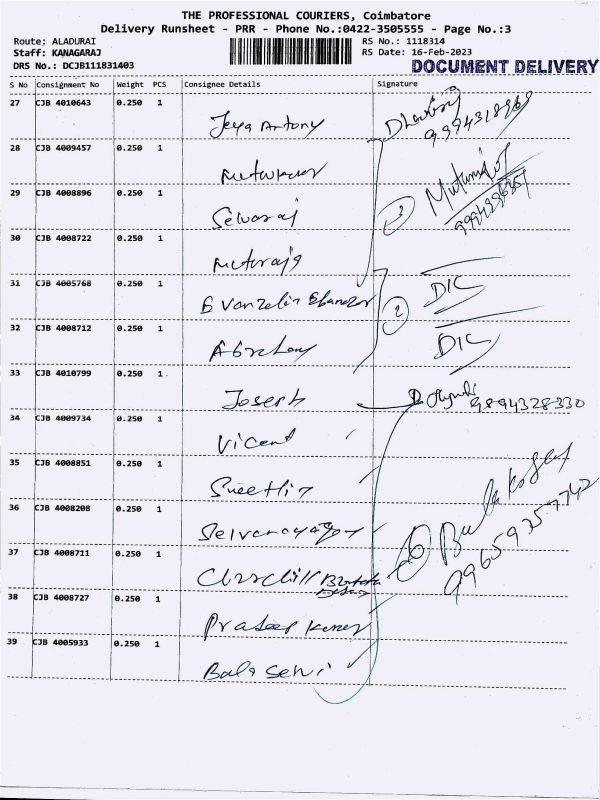 THE PROFESSIONAL COURIERS, Coimbatore
Delivery Runsheet - PRR - Phone No.:0422-3505555 - Page No.:3
Route; ALADURAI
Staff: KANAGARAJ
DRS No.: DCJB111831403
RS No.: 1118314
RS Date: 16-Feb-2023
DOCUMENT DELIVERY
S No Consignment No Weight PCS Consignee Details Signature
27 CJB 4010643 0.250 1 Jeya Antony
28 CJB 4009457 0.250 1
29 CJB 4008896 0.250 1 Selvaraj
3
30 CJB 4008722 0.250 1
31 CJB 4005768 0.250 1 DIC
2
32 CJB 4008712 0.250 1 DIC
33 CJB 4010799 0.250 1 Joseph 9894328330
34 CJB 4009734 0.250 1 Vicent
35 CJB 4008851 0.250 1
36 CJB 4008208 0.250 1
6
37 CJB 4008711 0.250 1 Churchill
38 CJB 4008727 0.250 1 Pradeep Kumar
39 CJB 4005933 0.250 1